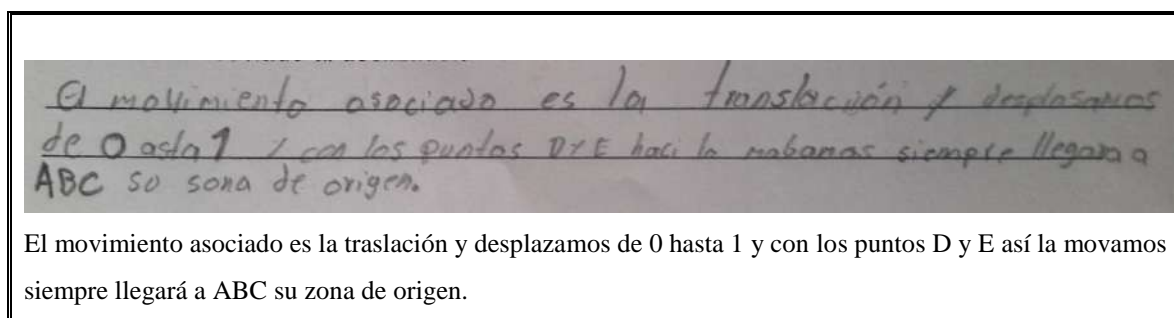 El movimiento asociado es la translación y desplasamos
de 0 asta 1 y con los puntos D y E haci la mobamos siempre llegara a
ABC su sona de origen.
El movimiento asociado es la traslación y desplazamos de 0 hasta 1 y con los puntos D y E así la movamos
siempre llegará a ABC su zona de origen.